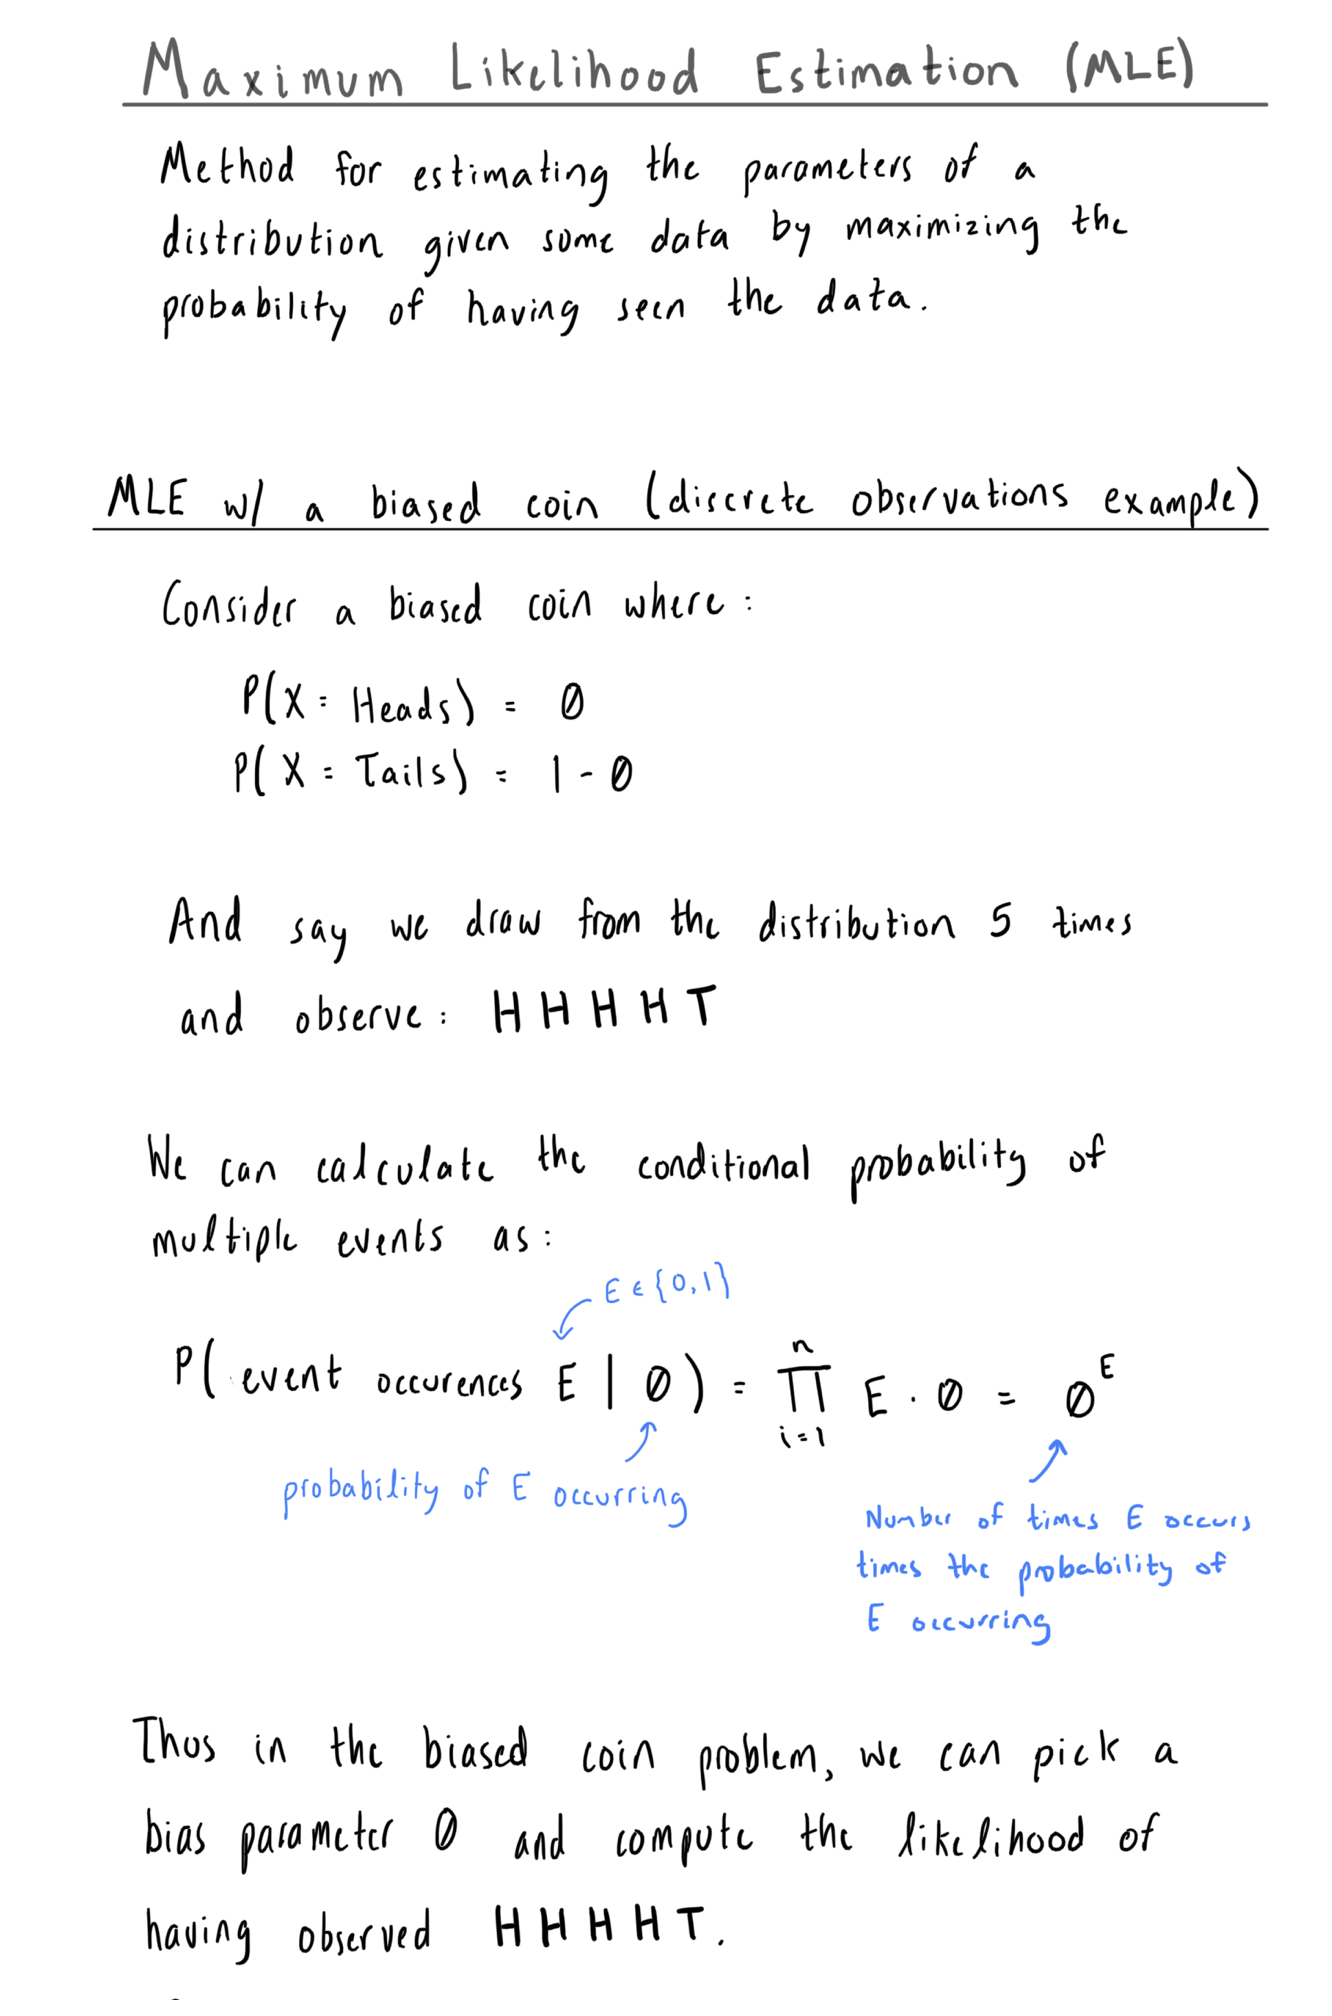 Maximum Likelihood Estimation (MLE)
Method for estimating the parameters of a
distribution given some data by maximizing the
probability of having seen the data.
MLE w/ a biased coin (discrete observations example)
Consider a biased coin where:
P(X = Heads) = θ
P(X = Tails) = 1 - θ
And say we draw from the distribution 5 times
and observe: H H H H T
We can calculate the conditional probability of
multiple events as:
E ∈ {0,1}
P(event occurences E | θ) = ∏_{i=1}^{n} E · θ = θ^E
probability of E occurring
Number of times E occurs
times the probability of
E occurring
Thus in the biased coin problem, we can pick a
bias parameter θ and compute the likelihood of
having observed H H H H T.